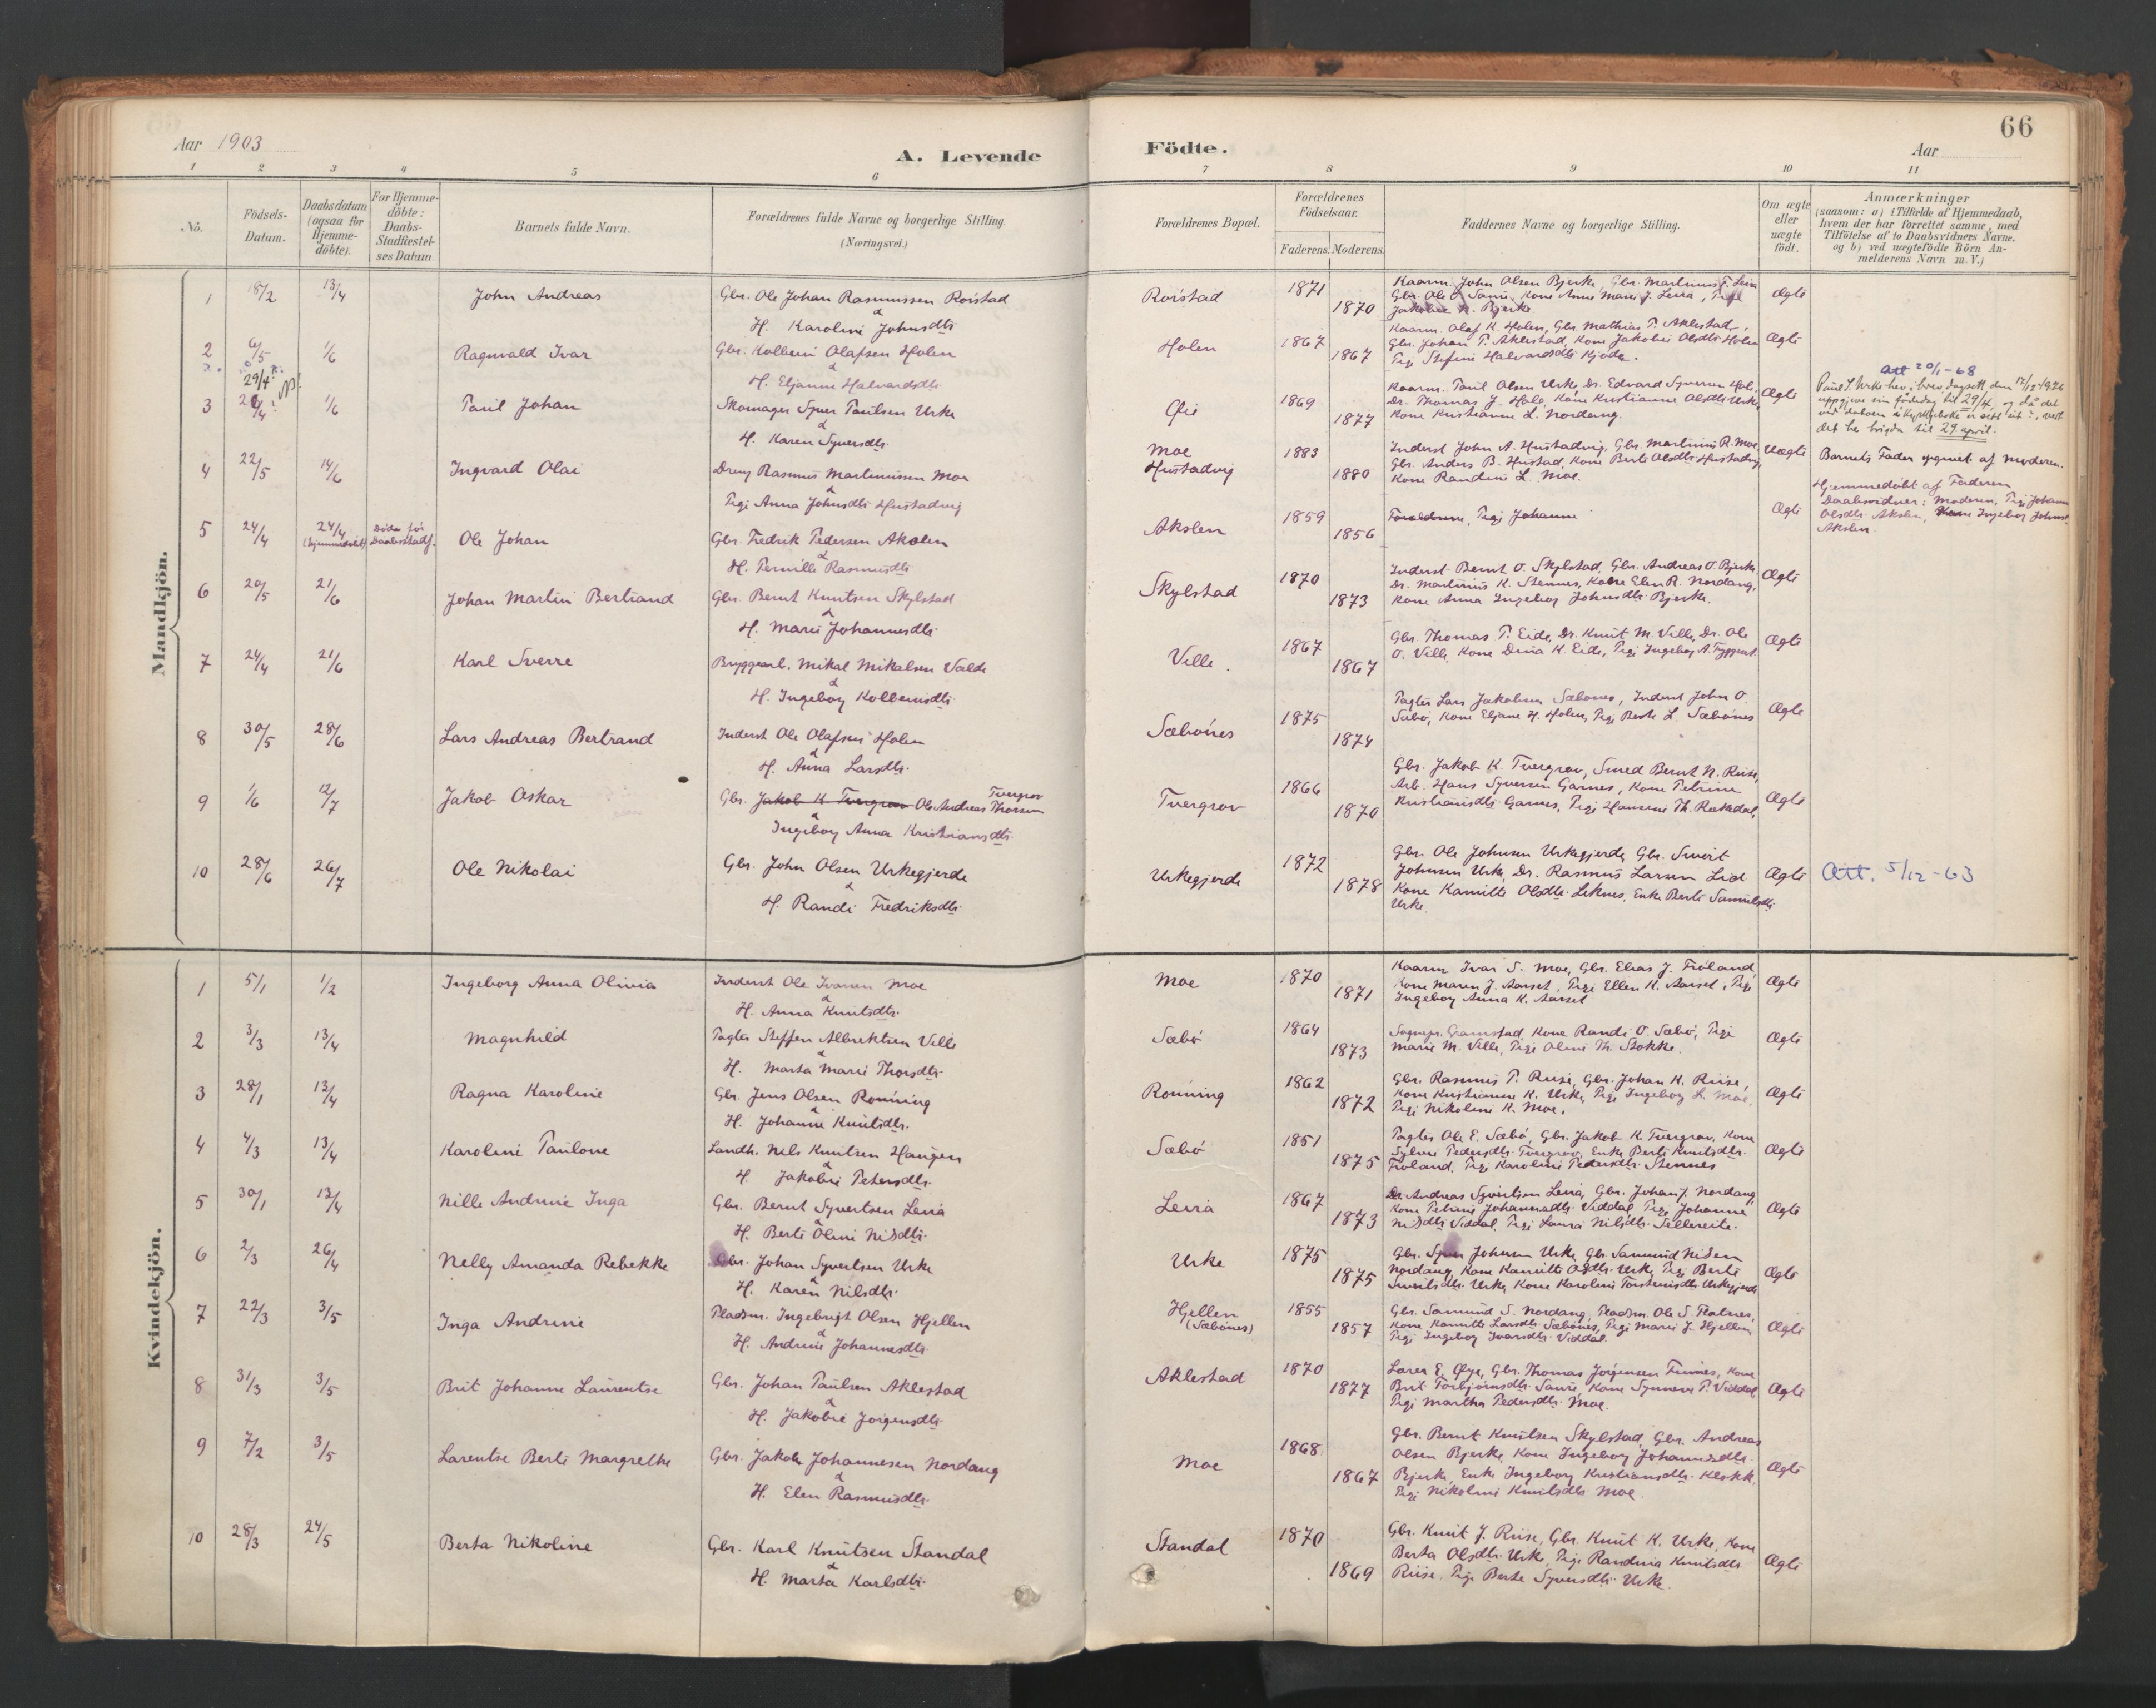 66
Aar 1903
A. Levende
Födte.
Aar
1 2 3 4 5 6 7 8 9 10 11
No.
Födsels-Datum.
Daabsdatum (ogsaa for Hjemme-döbte).
For Hjemme-döbte: Daabs-Stadfæstel-ses Datum
Barnets fulde Navn.
Forældrenes fulde Navne og borgerlige Stilling.
(Næringsvei.)
Forældrenes Bopæl.
Forældrenes Födselsaar.
Faderens. Moderens.
Faddernes Navne og borgerlige Stilling.
Om ægte eller uægte födt.
Anmærkninger
(saasom: a) i Tilfælde af Hjemmedaab, hvem der har forrettet samme, med Tilföielse af to Daabsvidners Navne, og b) ved uægtefödte Börn An-melderens Navn m. V.)
Mandkjön.
1 18/2 13/4 John Andreas Gbr. Ole Johan Rasmussen Roistad & H. Karoline Johnsdtr. Roistad 1871 1870
Kaarm. John Olsen Bjerke, Gbr. Martinus T. Leira
Gbr. Ole O. Saure, Kone Anne Marie J. Leira, Pige
Jakobie K. Bjerke.
Ægte
2 6/5 1/6 Ragnvald Ivar Gbr. Kolbein Olafsen Holen & H. Eljanne Halvardsdtr. Holen 1867 1867
Kaarm. Olaf K. Holen, Gbr. Mathias P. Aklestad,
Gbr. Johan P. Aklestad, Kone Jakobie Olsdtr. Holen
Pige Stefine Halvardsdtr. Kjode.
Ægte
3 29/4 1/6 Paul Johan Skomager Syver Paulsen Urke & H. Karen Syversdtr. Øie 1869 1877
Kaarm. Paul Olsen Urke, Dr. Edvard Syversen Hole,
Dr. Thomas J. Hole, Kone Kristianne Olsdtr. Urke,
Kone Kristianne L. Nordang.
Ægte
Att 20/1-68
Paul S. Urke hev i brev dagsett den 17/12-1926
uppgjeve sin fødedag til 29/4, og då det
ved daaben i kyrkjeboka er sett eit ?, vert
det her brigda til 29. april.
4 22/5 14/6 Ingvard Olai Dreng Rasmus Martinussen Moe & Pige Anna Johnsdtr. Hustadvig Moe Hustadvig 1883 1880
Inderst John A. Hustadvig, Gbr. Martinus R. Moe,
Gbr. Anders B. Hustad, Kone Berte Olsdtr. Hustadvig,
Kone Randine L. Moe.
Uægte
Barnets Fader opgivet af Moderen.
5 24/4 24/4 (hjemmedøbt) Døde før Daabsstadf. Ole Johan Gbr. Fredrik Pedersen Akslen & H. Pernille Rasmusdtr. Akslen 1859 1856
Forældrene, Pige Johanne
Ægte
Hjemmedøbt af Faderen
Daabsvidner: Moderen, Pige Johanne
Olsdtr. Akslen, Kone Ingebor Johnsd.
Akslen.
6 20/5 21/6 Johan Martin Bertrand Gbr. Bernt Knutsen Skylstad & H. Marie Johannesdtr. Skylstad 1870 1873
Inderst Bernt O. Skylstad, Gbr. Andreas O. Bjerke
Dr. Martinus K. Stennes, Kone Elen R. Nordang,
Kone Anna Ingebor Johnsdtr. Bjerke.
Ægte
7 24/4 21/6 Karl Sverre Bryggearb. Mikal Mikalsen Valde & H. Ingeborg Kolbeinsdtr. Ville. 1867 1867
Gbr. Thomas P. Eide, Dr. Knut M. Ville, Dr. Ole
O. Ville, Kone Dina K. Eide, Pige Ingebor A.
Ægte
8 30/5 28/6 Lars Andreas Bertrand Inderst Ole Olafsen Holen & H. Anna Larsdtr. Sæbönes 1875 1874
Pagter Lars Jakobsen Sæbönes, Inderst John O.
Sæbö, Kone Eljane H. Holen, Pige Berte L. Sæbönes
Ægte
9 1/6 12/7 Jakob Oskar Gbr. Jakob K Tvergrov Ole Andreas Thorsen Tvergrov & Ingeborg Anna Kristiansdtr. Tvergrov 1866 1870
Gbr. Jakob K. Tvergrov, Smed Bernt N. Riise,
Arb. Hans Syversen Garnes, Kone Petrine
Kristiansdtr. Garnes, Pige Hansine Th. Rækdal,
Ægte
10 28/6 26/7 Ole Nikolai Gbr. John Olsen Urkegjerde & H. Randi Fredriksdtr. Urkegjerde 1872 1878
Gbr. Ole Johnsen Urkegjerde, Gbr. Sivert
Johnsen Urke, Dr. Rasmus Larsen Lid
Kone Kamille Olsdtr. Leknes, Enke Berte Samuelsdtr.
Urke.
Ægte
Att. 5/12-63
Kvindekjön.
1 5/1 1/2 Ingeborg Anna Olivia Inderst Ole Ivarsen Moe & H. Anna Knutsdtr. Moe 1870 1871
Kaarm. Ivar S. Moe, Gbr. Elias J. Fröland,
Kone Maren J. Aarset, Pige Ellen K. Aarset, Pige
Ingeborg Anna K. Aarset
Ægte
2 3/3 13/4 Magnhild Pagter Steffen Albrektsen Ville & H. Marta Marie Thorsdtr. Sæbö 1864 1873
Sognepr. Gramstad, Kone Randi O. Sæbö, Pige
Marie M. Ville, Pige Oline Th. Stokke.
Ægte
3 28/1 13/4 Ragna Karoline Gbr. Jens Olsen Rönning & H. Johanne Knutsdtr. Rönning 1862 1872
Gbr. Rasmus P. Riise, Gbr. Johan K. Riise,
Kone Kristianne K. Urke, Pige Ingeborg L. Moe,
Pige Nikoline K. Moe.
Ægte
4 4/3 13/4 Karoline Paulone Landh. Nils Knutsen Haugen & H. Jakobie Petersdtr. Sæbö 1851 1875
Pagter Ole E. Sæbö, Gbr. Jakob K. Tvergrov, Kone
Sylvie Pedersdtr. Tvergrov, Enke Berte Knutsdtr.
Fröland, Pige Karoline Pedersdtr. Stennes
Ægte
5 30/1 13/4 Nille Andrine Inga Gbr. Bernt Syvertsen Leira & H. Berte Oline Nilsdtr. Leira 1867 1873
Dr. Andreas Syvertsen Leira, Gbr. Johan J. Nordang,
Kone Petrine Johannesdtr. Viddal, Pige Johanne
Nilsdtr. Viddal, Pige Laura Nilsdtr. Sellereite.
Ægte
6 2/3 26/4 Nelly Amanda Rebekke Gbr. Johan Syvertsen Urke & H. Karen Nilsdtr. Urke 1875 1875
Gbr. Syver Johnsen Urke, Gbr. Samund Nilsen
Nordang, Kone Kamille Olsdtr. Urke, Pige Berte
Sivertsdtr. Urke, Kone Karoline Torsteinsdtr. Urkegjerde
Ægte
7 22/3 3/5 Inga Andrine Pladsm. Ingebrigt Olsen Hjellen & H. Andrine Johannesdtr. Hjellen (Sæbönes) 1855 1857
Gbr. Samund S. Nordang, Pladsm. Ole S. Flatnes,
Kone Kamille Larsdtr. Sæbönes, Pige Marie J. Hjellen,
Pige Ingebor Ivarsdtr. Viddal.
Ægte
8 31/3 3/5 Brit Johanne Laurentse Gbr. Johan Paulsen Aklestad & H. Jakobie Jörgensdtr. Aklestad 1870 1877
Lærer E. Øye, Gbr. Thomas Jörgensen Finnes, Kone
Brit Torbjörnsdtr. Saure, Kone Synneve P. Viddal,
Pige Martha Pedersdtr. Moe.
Ægte
9 7/2 3/5 Larentse Berte Margrethe Gbr. Jakob Johannesen Nordang & H. Elen Rasmusdtr. Moe 1868 1867
Gbr. Bernt Knutsen Skylstad, Gbr. Andreas
Olsen Bjerke, Kone Ingeborg Johannesdtr.
Bjerke, Enke Ingeborg Kristiansdtr. Klokk,
Pige Nikoline Knutsdtr. Moe.
Ægte
10 28/3 24/5 Berta Nikoline Gbr. Karl Knutsen Standal & H. Marta Karlsdtr. Standal 1870 1869
Gbr. Knut J. Riise, Gbr. Knut K. Urke, Kone
Berta Olsdtr. Urke, Pige Randina Knutsdtr.
Riise. Pige Berte Syversdtr. Urke.
Ægte